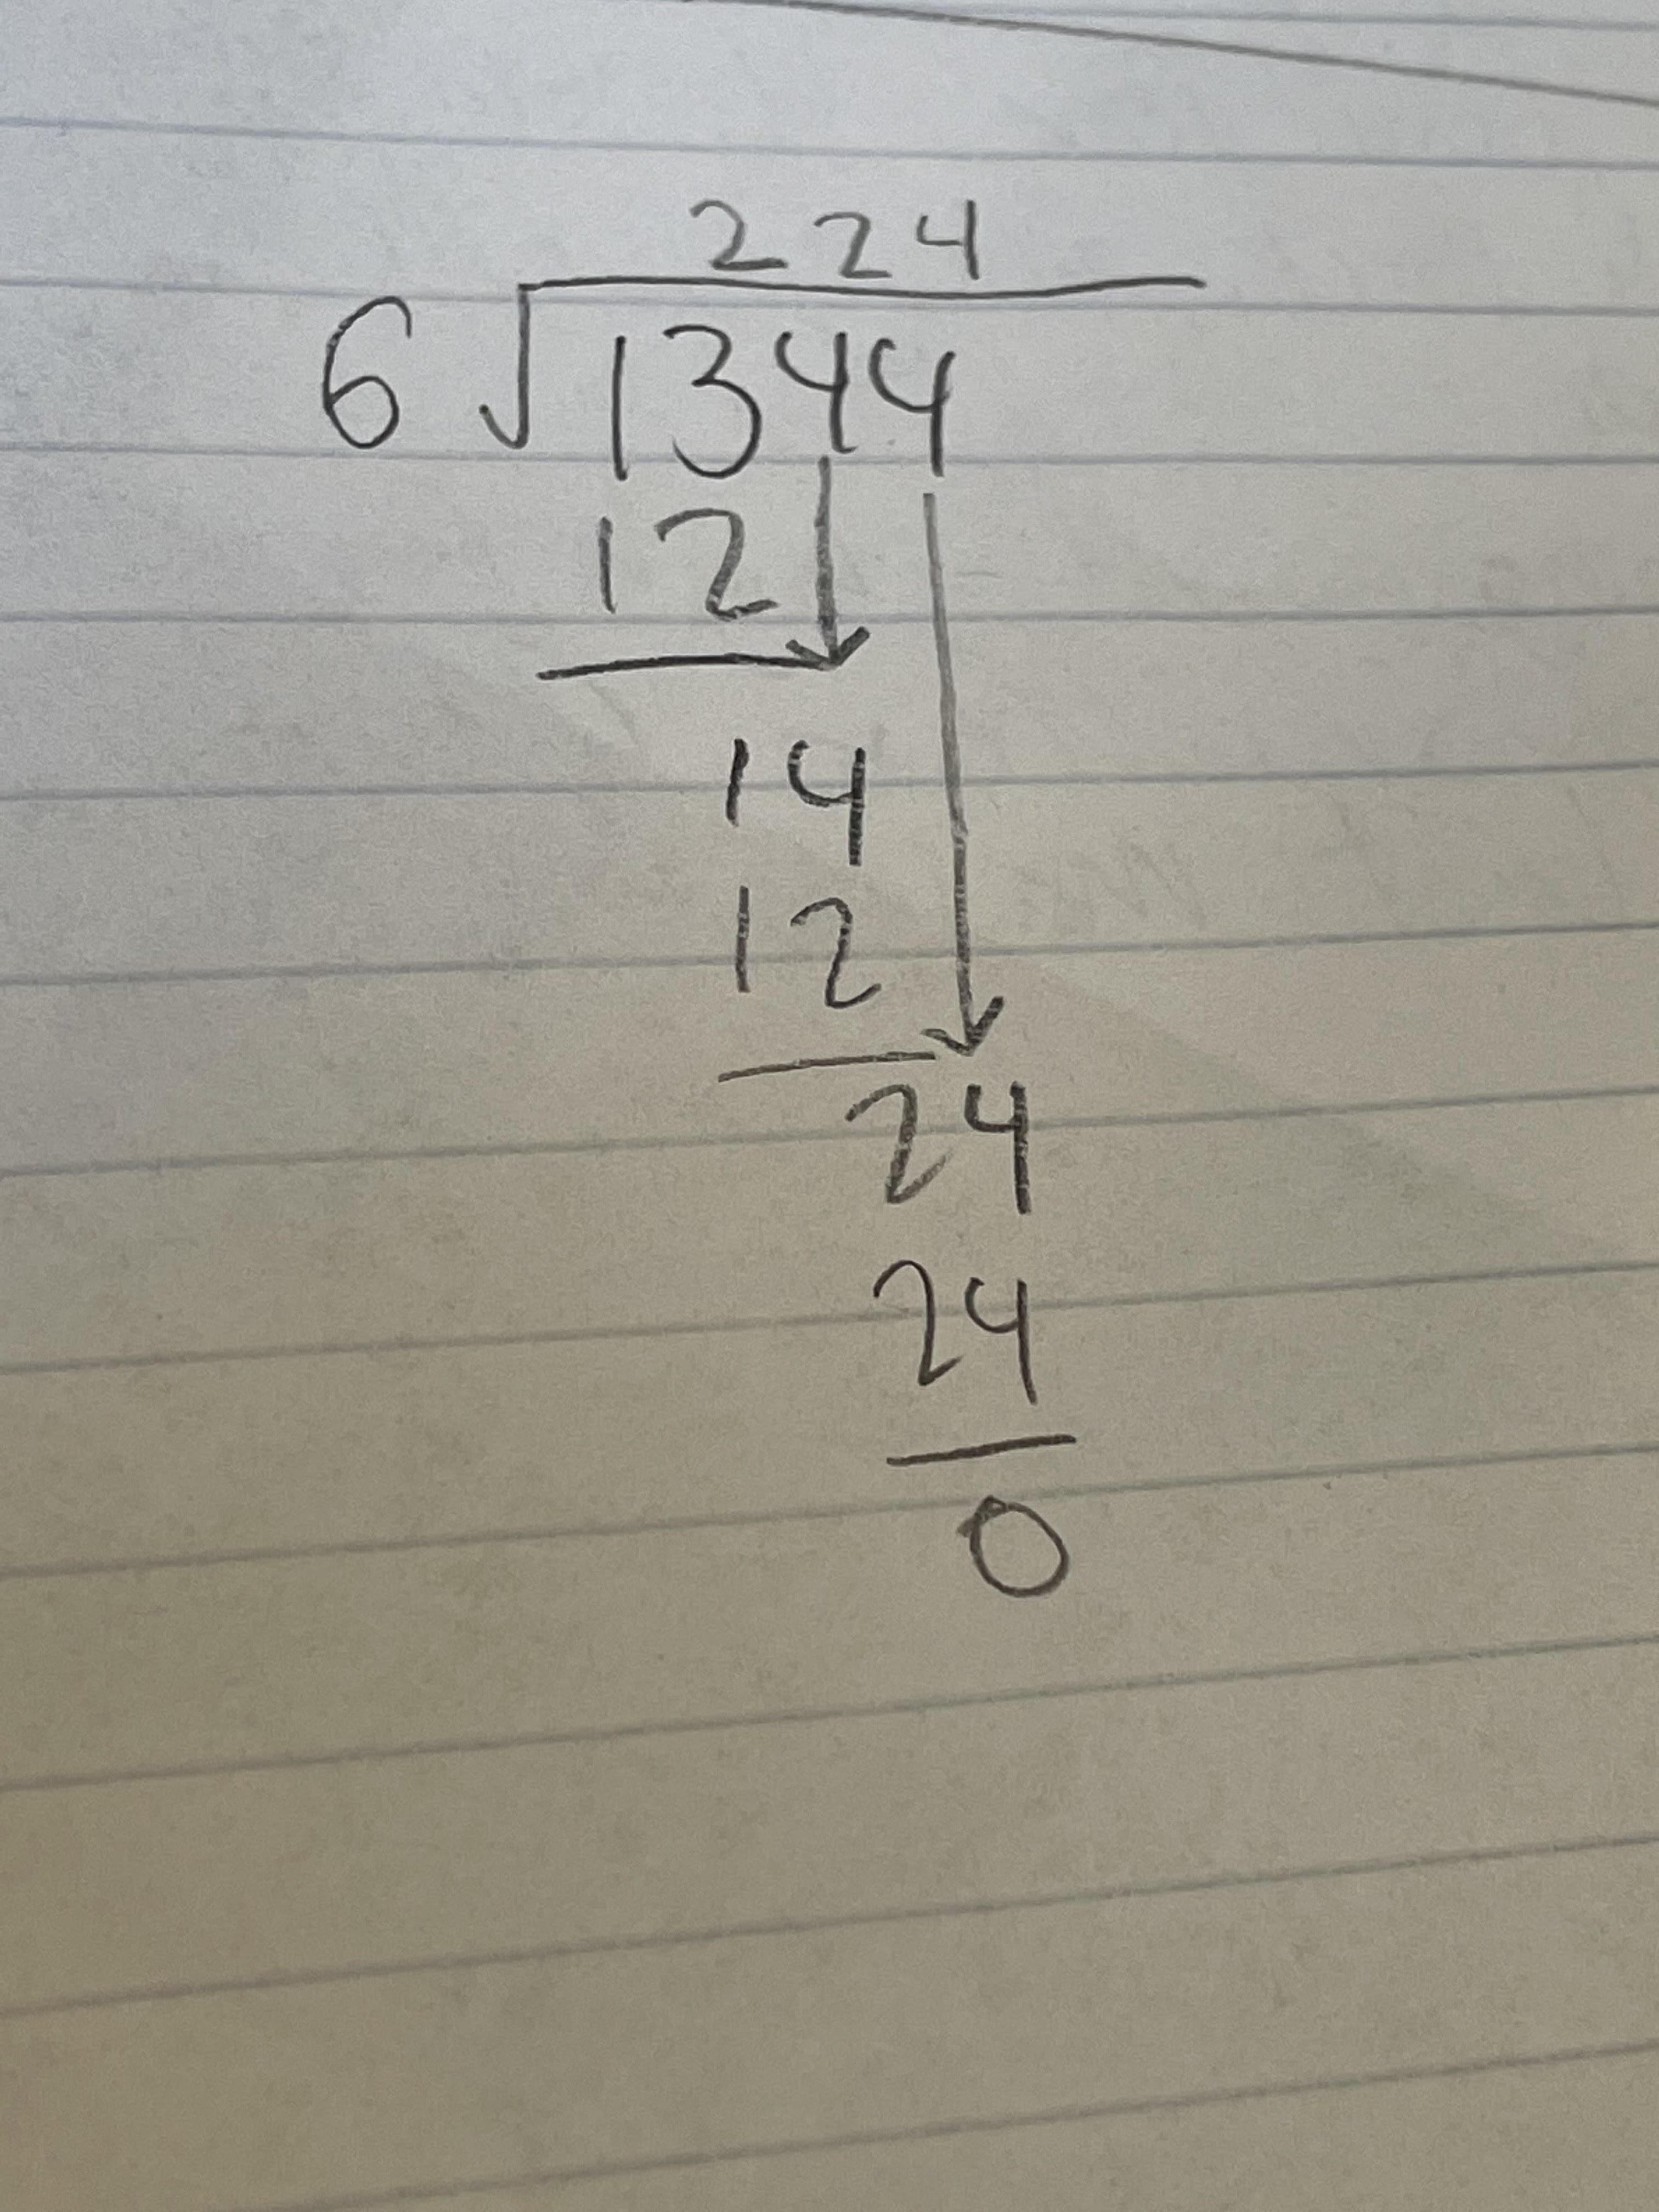 224
6 √1344
12
14
12
24
24
0